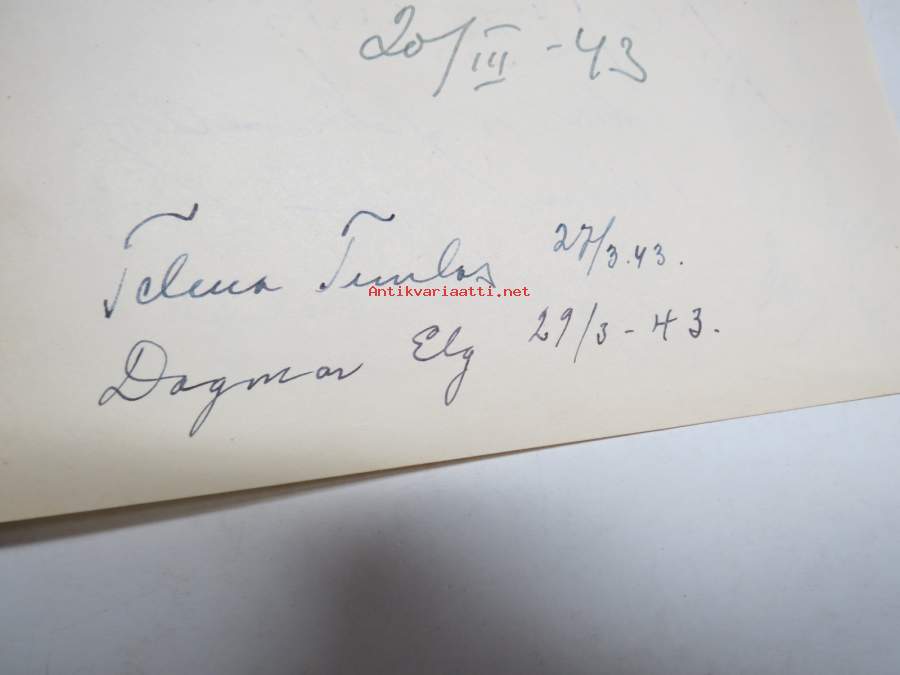 20/III - 43
27/3.43.
Antikvariaatti.net
Dagmar Elg 29/3 - 43.